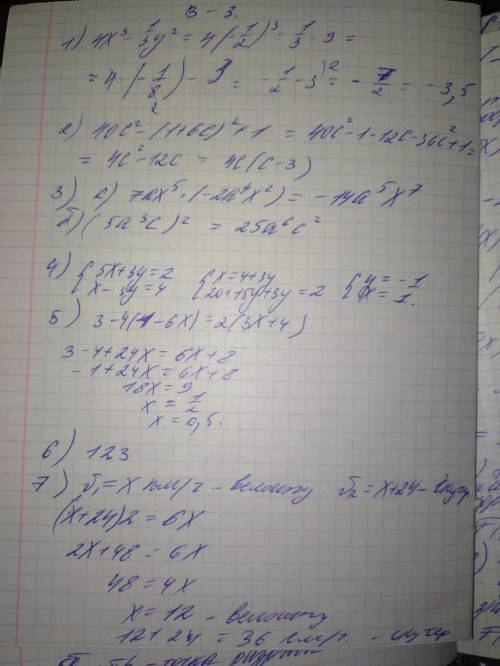 В-3.
1) 4x³ - 1/3y² = 4(-1/2)³ - 1/3 · 9 =
= 4 · (-1/8) - 3 = -1/2 - 3 = -7/2 = -3,5
2) 40c² - (1+6c)² + 1 = 40c² - 1 - 12c - 36c² + 1 =
= 4c² - 12c = 4c(c - 3)
3) а) 7ax⁵ · (-2a⁴x²) = -14a⁵x⁷
б) (5a³c)² = 25a⁶c²
4) { 5x+3y=2 { x=4+3y { y=-1
x-3y=4 20+15y+3y=2 x=1.
5) 3-4(1-6x)=2(3x+4)
3-4+24x=6x+8
-1+24x=6x+8
18x=9
x=1/2
x=0,5.
6) 123
7) V₁=x км/ч - велосипед V₂=x+24 - скутер
(x+24)2=6x
2x+48=6x
48=4x
x=12 - велосипед
12+24=36 км/ч. - скутер